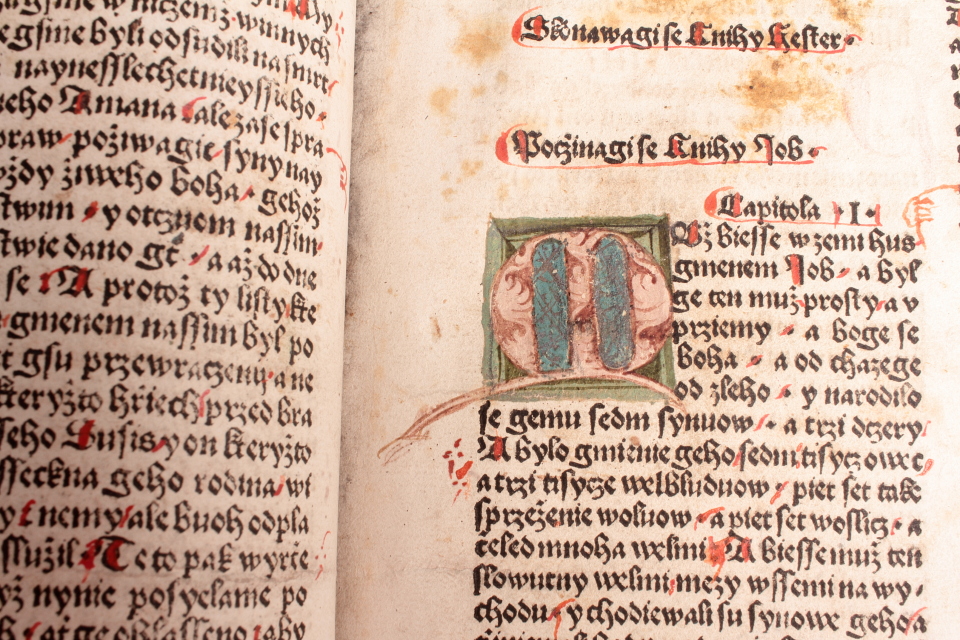 wniczemz winnych
egsme byli odsudili na smrt
naynesslechetnieyssieho
neho Amana ale zase spra
praw poziwagie syny nay
żiweho boha gehoż
y otczuom nassim
stwie dano ge a aż do dne
se A protoż ty listy kte
gmenem nassim byl po
gsu przewraczeny a ne
kteryżto hriech przed bra
seho Susis y on kteryżto
sseckna geho rodina wi
nemy ale buoh odpla
ssużil Te to pak wyrcie
nynie posyelame po
at ge ohlasseno aby
Skonawagi se Knihy Hester
Poczinagi se Knihy Job
Capitola I
Uż biesse w zemi hus
gmenem Job a byl
ge ten muż prosty a v
prziemy a boge se
boha a od chazege
od zleho y narodilo
se gemu sedm synuow a trzi dczery
A bylo gmienie geho sedm tisycz owec
a trzi tisycze welbluduow piet set take
sprzeżenie woluow a piet set woslicz a
czeled mnoha welmi A biesse muż ten
slowutny welmi mezy wssemi na wy
chodu y chodiewali su synowe geho a